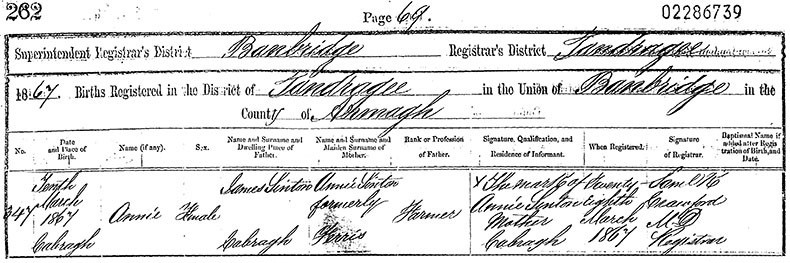 262
Page 69.
02286739
Superintendent Registrar's District Banbridge Registrar's District Tandragee
1867. Births Registered in the District of Tandragee in the Union of Banbridge in the
County of Armagh
No. Date and Place of Birth. Name (if any). Sex. Name and Surname and Dwelling Place of Father. Name and Surname and Maiden Surname of Mother. Rank or Profession of Father. Signature, Qualification, and Residence of Informant. When Registered. Signature of Registrar. Baptismal Name if added after Registration of Birth, and Date.
347
Tenth
March
1867
Cabragh
Annie
Female
James Sinton
Cabragh
Annie Sinton
formerly
Ferris
Farmer
X The mark of
Annie Sinton
Mother
Cabragh
Twenty
eighth
March
1867
Crawford
MD
Registrar